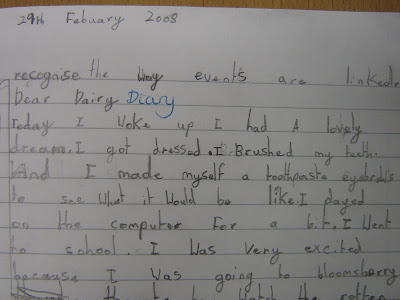 29th Febuary 2008
recognise the way events are linked
Dear Dairy Diary
Today I woke up I had A lovely
dream. I got dressed. I Brushed my teeth.
And I made myself a toothpaste
to see what it would be like. I played
on the computer for a bit. I went
to school. I was very excited
because I was going to bloomsberry
to watch the rotten